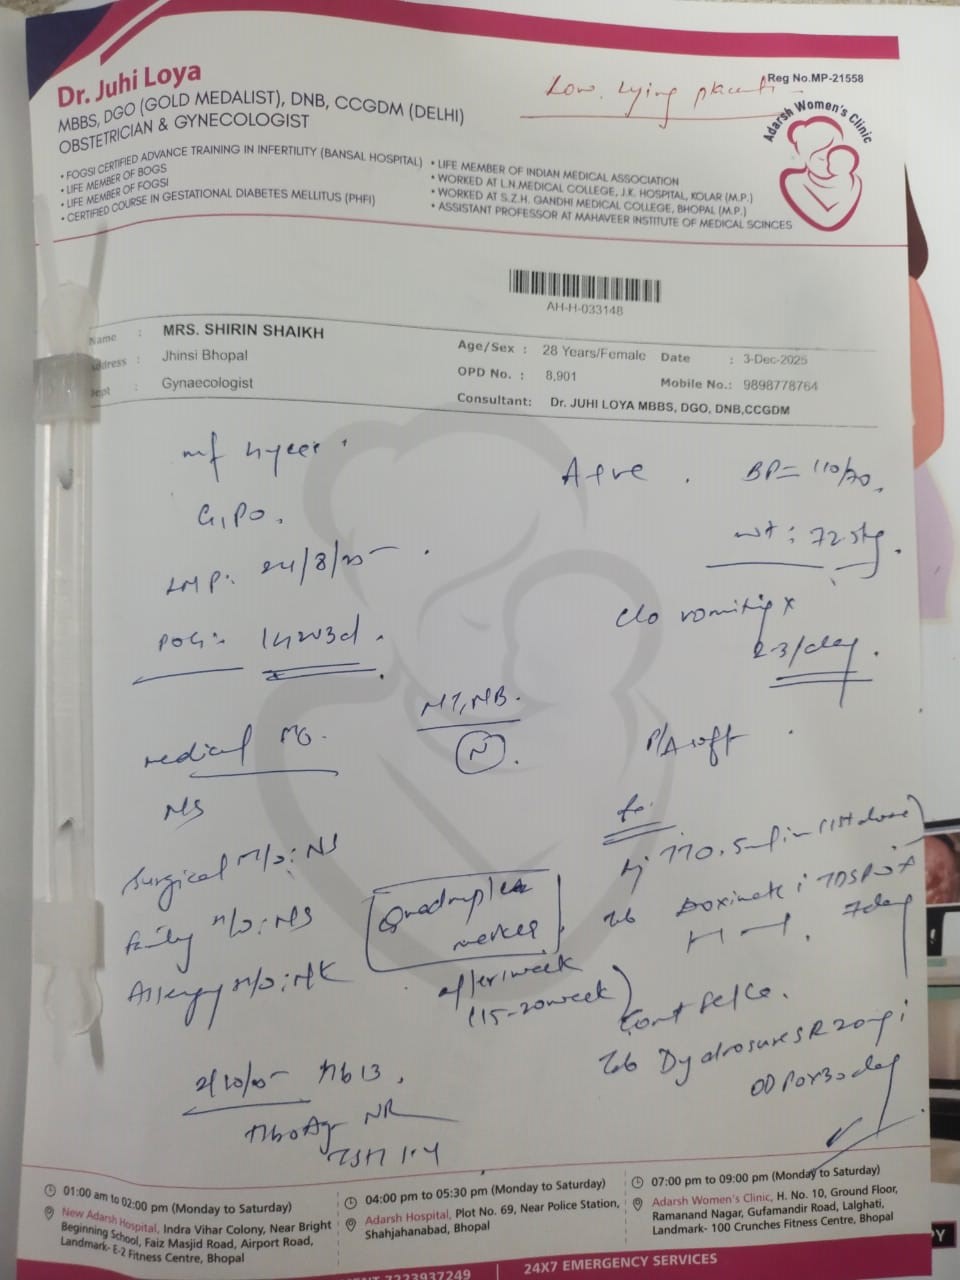 Dr. Juhi Loya
MBBS, DGO (GOLD MEDALIST), DNB, CCGDM (DELHI)
OBSTETRICIAN & GYNECOLOGIST
• FOGSI CERTIFIED ADVANCE TRAINING IN INFERTILITY (BANSAL HOSPITAL)
• LIFE MEMBER OF BOGS
• LIFE MEMBER OF FOGSI
• CERTIFIED COURSE IN GESTATIONAL DIABETES MELLITUS (PHFI)
• LIFE MEMBER OF INDIAN MEDICAL ASSOCIATION
• WORKED AT L.N.MEDICAL COLLEGE, J.K. HOSPITAL, KOLAR (M.P.)
• WORKED AT S.Z.H. GANDHI MEDICAL COLLEGE, BHOPAL (M.P.)
• ASSISTANT PROFESSOR AT MAHAVEER INSTITUTE OF MEDICAL SCINCES
Low lying placenta
Reg No.MP-21558
Adarsh Women's Clinic
AH-H-033148
Name : MRS. SHIRIN SHAIKH
Address : Jhinsi Bhopal
Dept : Gynaecologist
Age/Sex : 28 Years/Female Date : 3-Dec-2025
OPD No. : 8,901 Mobile No.: 9898778764
Consultant: Dr. JUHI LOYA MBBS, DGO, DNB,CCGDM
G1P0.
LMP: 24/8/25
POG: 14w3d.
medical
NS
Surgical H/o: NS
family H/o: NS
Allergy H/o: NK
NT, NB.
N
Quadruple
marker
after 1 week
(15-20 week)
2/10/25 Hb 13.
HbsAg NR
TSH 1.4
A+ve. BP= 110/70.
wt: 72.5kg.
C/o vomiting x
2-3/day.
P/A soft
Inj TT 0.5ml im (1st dose)
Tab Doxinate 1 TDS
7 day
Cont
20mg
OD for 30 day
01:00 am to 02:00 pm (Monday to Saturday)
New Adarsh Hospital, Indra Vihar Colony, Near Bright
Beginning School, Faiz Masjid Road, Airport Road,
Landmark- E-2 Fitness Centre, Bhopal
04:00 pm to 05:30 pm (Monday to Saturday)
Adarsh Hospital, Plot No. 69, Near Police Station,
Shahjahanabad, Bhopal
07:00 pm to 09:00 pm (Monday to Saturday)
Adarsh Women's Clinic, H. No. 10, Ground Floor,
Ramanand Nagar, Gufamandir Road, Lalghati,
Landmark- 100 Crunches Fitness Centre, Bhopal
7223937249
24X7 EMERGENCY SERVICES